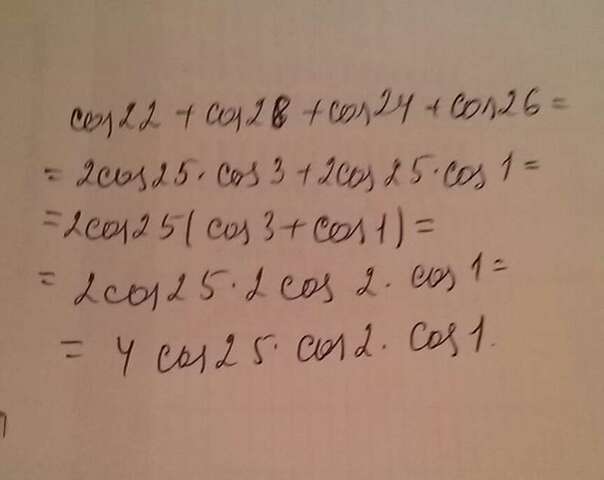 cos22 + cos28 + cos24 + cos26 =
= 2cos25 · cos3 + 2cos25 · cos1 =
= 2cos25(cos3 + cos1) =
= 2cos25 · 2cos2 · cos1 =
= 4cos25 · cos2 · cos1.